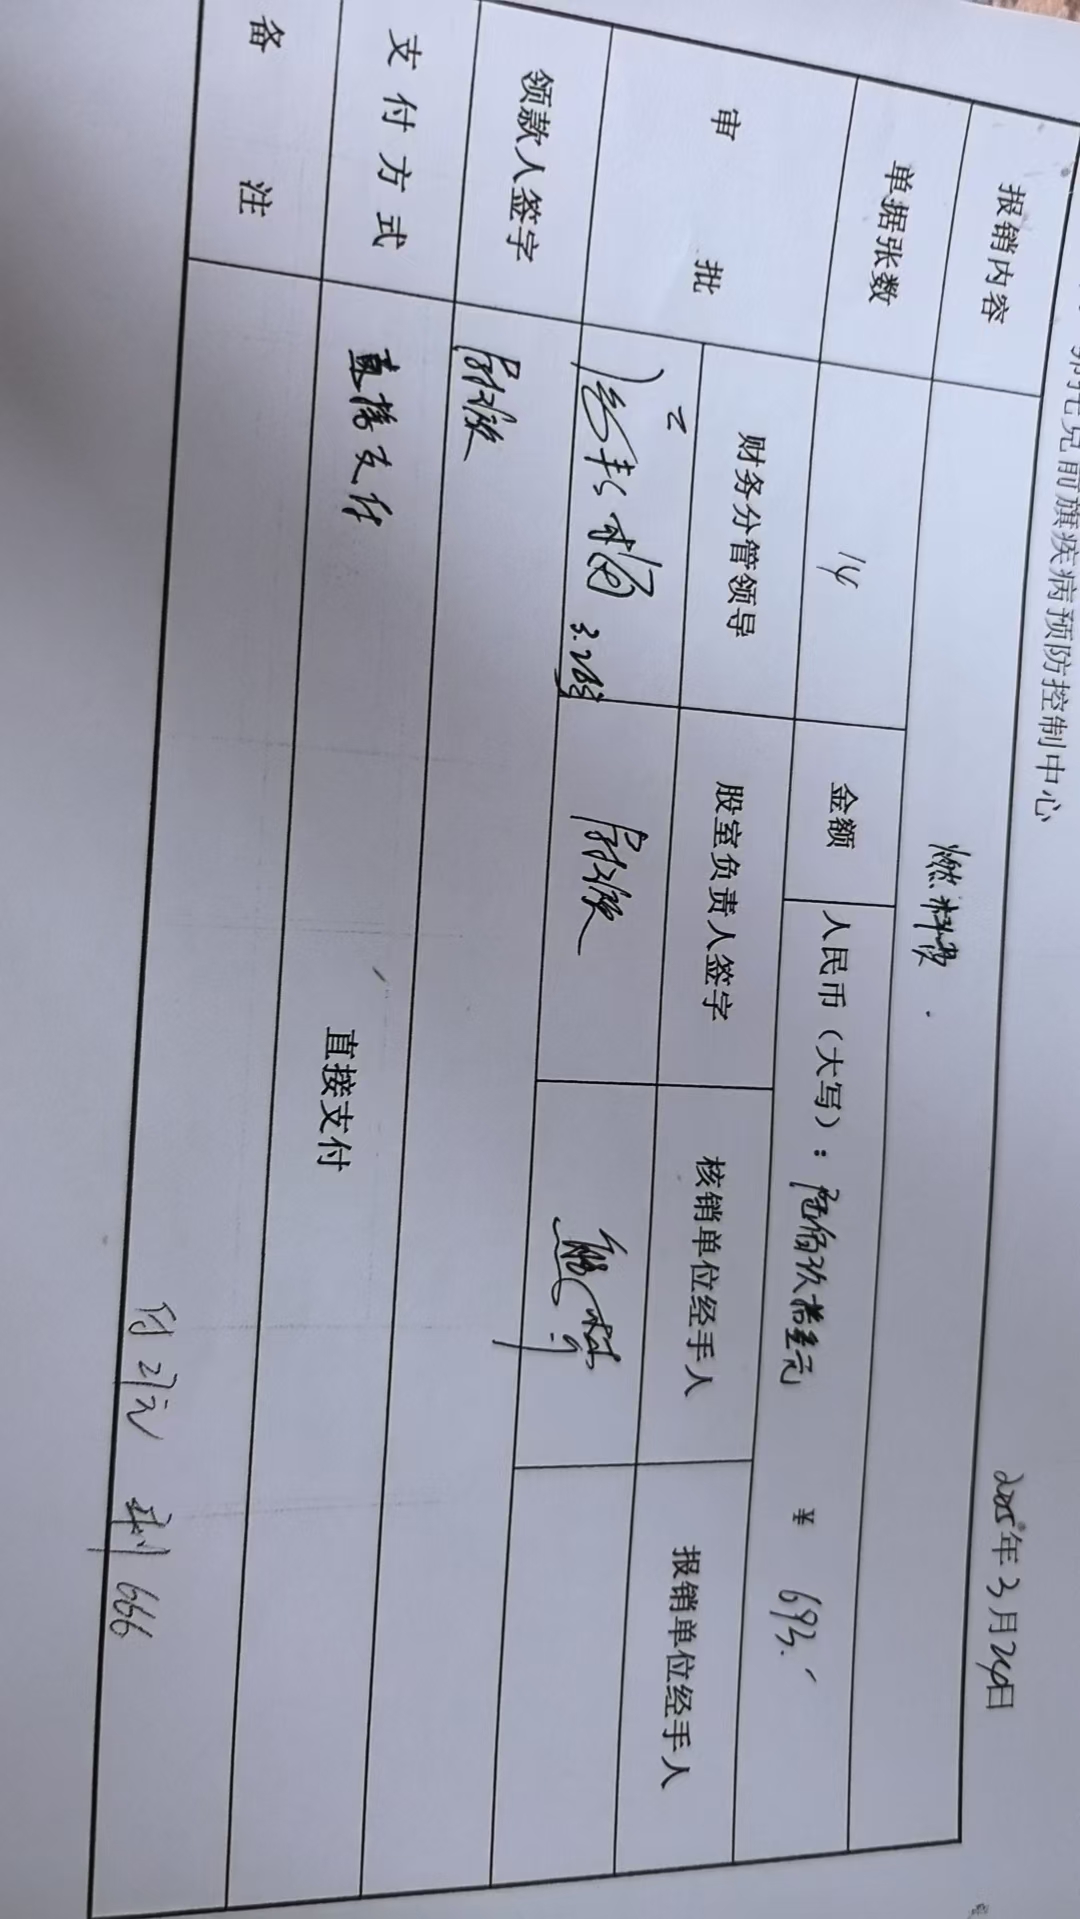 前旗疾病预防控制中心
2025年3月24日
报销内容 燃料费
单据张数 14 金额 人民币（大写）：陆佰玖拾叁元 ¥ 693.
审批 财务分管领导 股室负责人签字 核销单位经手人 报销单位经手人
领款人签字
支付方式 直接支付 直接支付
备注
付27元 剩666